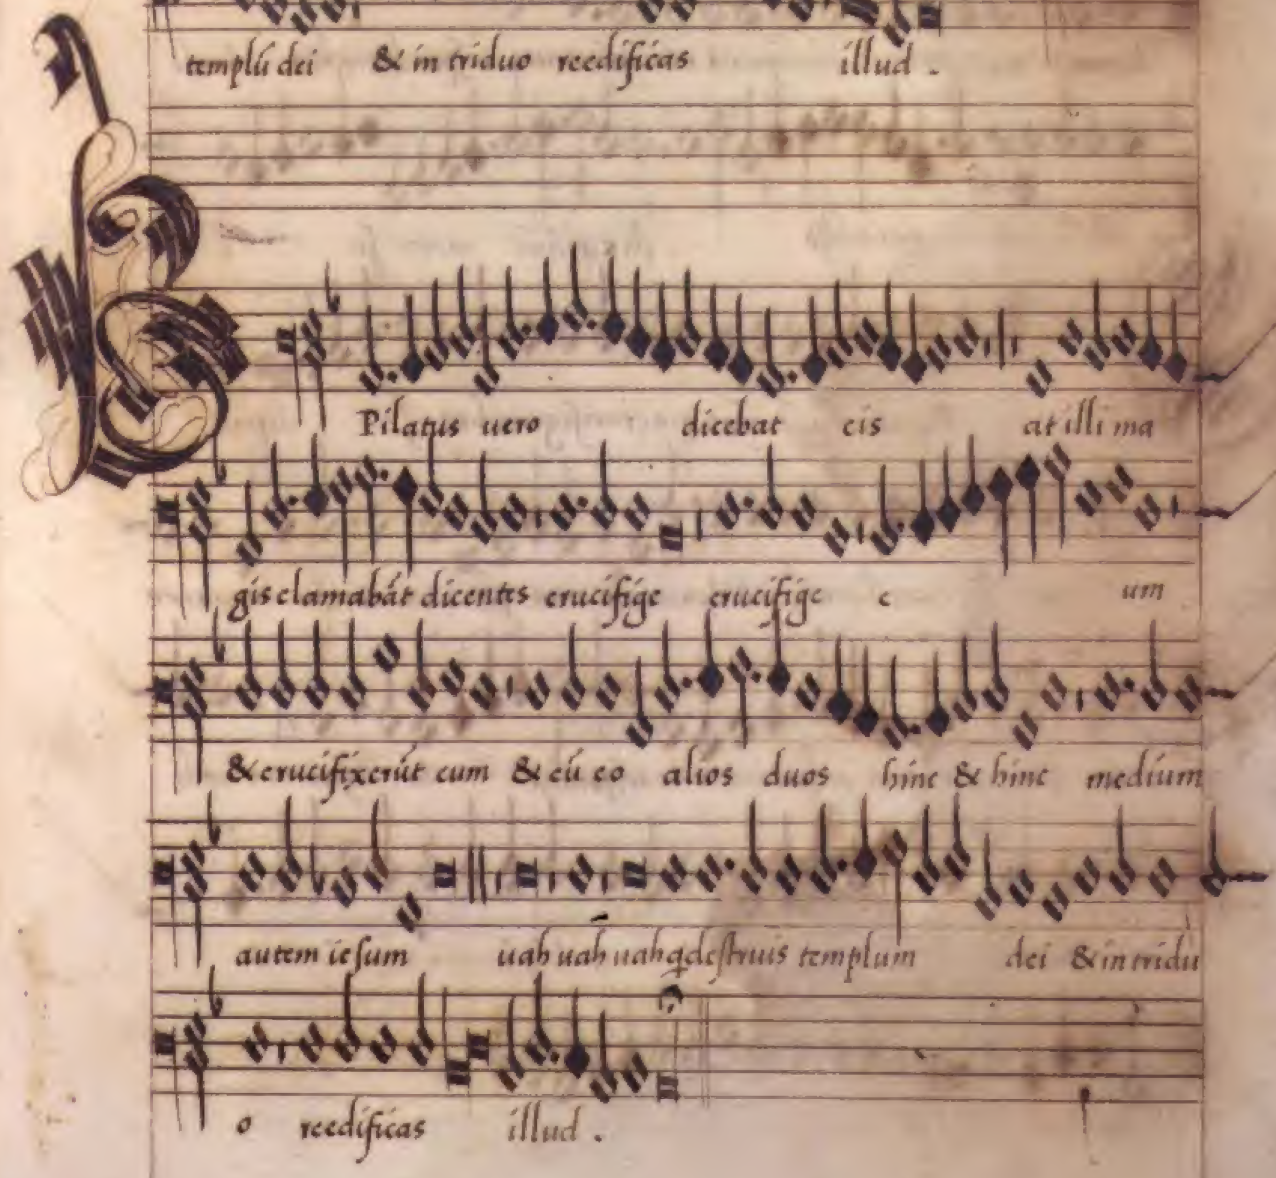 templū dei & in triduo reedificas illud .
Pilatus uero dicebat eis at illi ma
gis clamabāt dicentes crucifige crucifige e um
& crucifixerūt eum & cū eo alios duos hinc & hinc medium
autem iesum uah uah uah q destruis templum dei & in tridu
o reedificas illud .